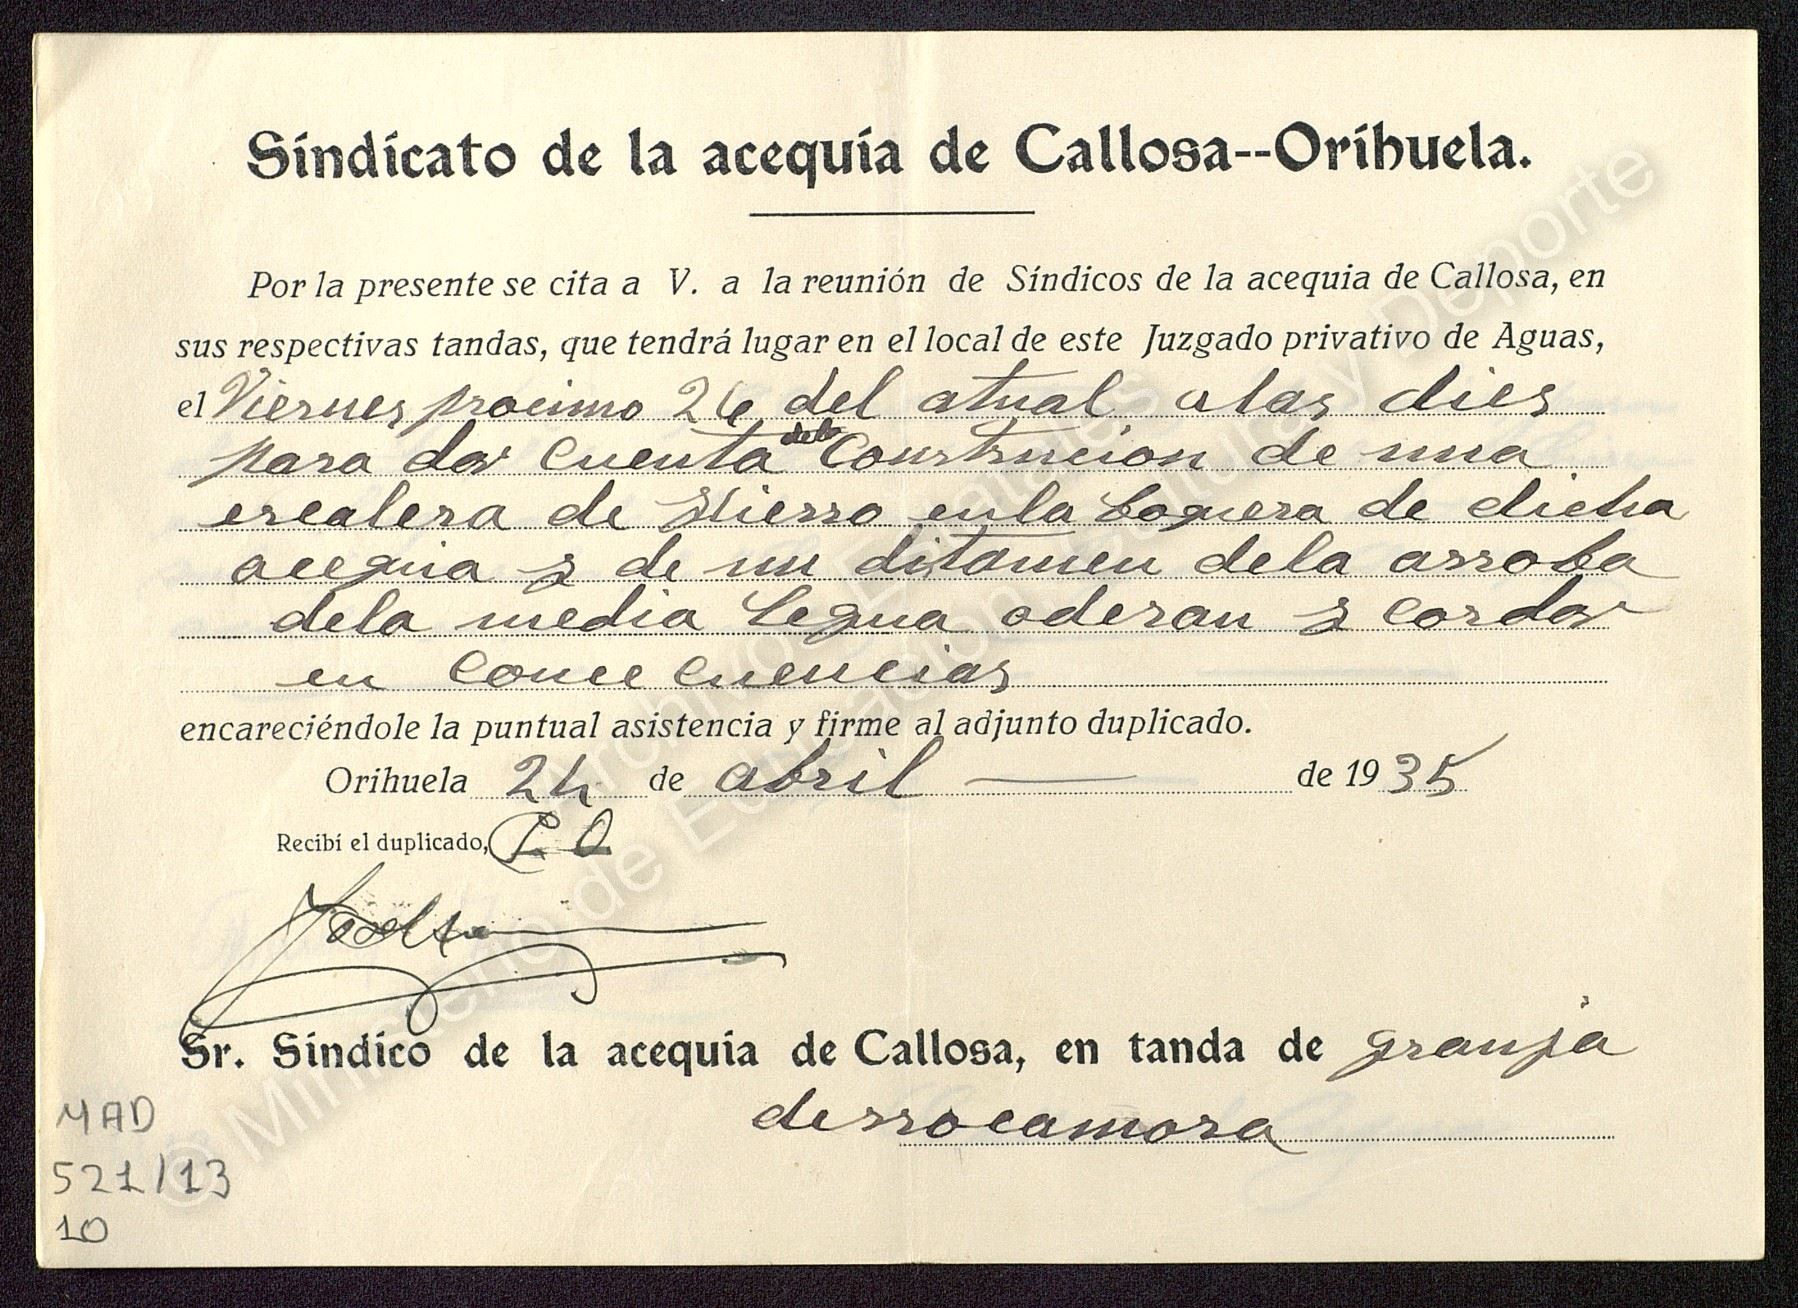 Sindicato de la acequia de Callosa--Orihuela.
Por la presente se cita a V. a la reunión de Síndicos de la acequia de Callosa, en
sus respectivas tandas, que tendrá lugar en el local de este Juzgado privativo de Aguas,
el Viernes procimo 26 del atual a las dies
para dar cuenta de la Construcion de una
escalera de Hierro en la Boquera de dicha
acequia y de un ditamen dela arroba
dela media Legua aderan y cordar
en concecuencias
encareciéndole la puntual asistencia y firme al adjunto duplicado.
Orihuela 24 de abril de 1935
Recibí el duplicado, P O
Sr. Síndico de la acequia de Callosa, en tanda de granja
derrocamora
MAD
521/13
10
© Ministerio de Educación, Cultura y Deporte
Archivos Estatales